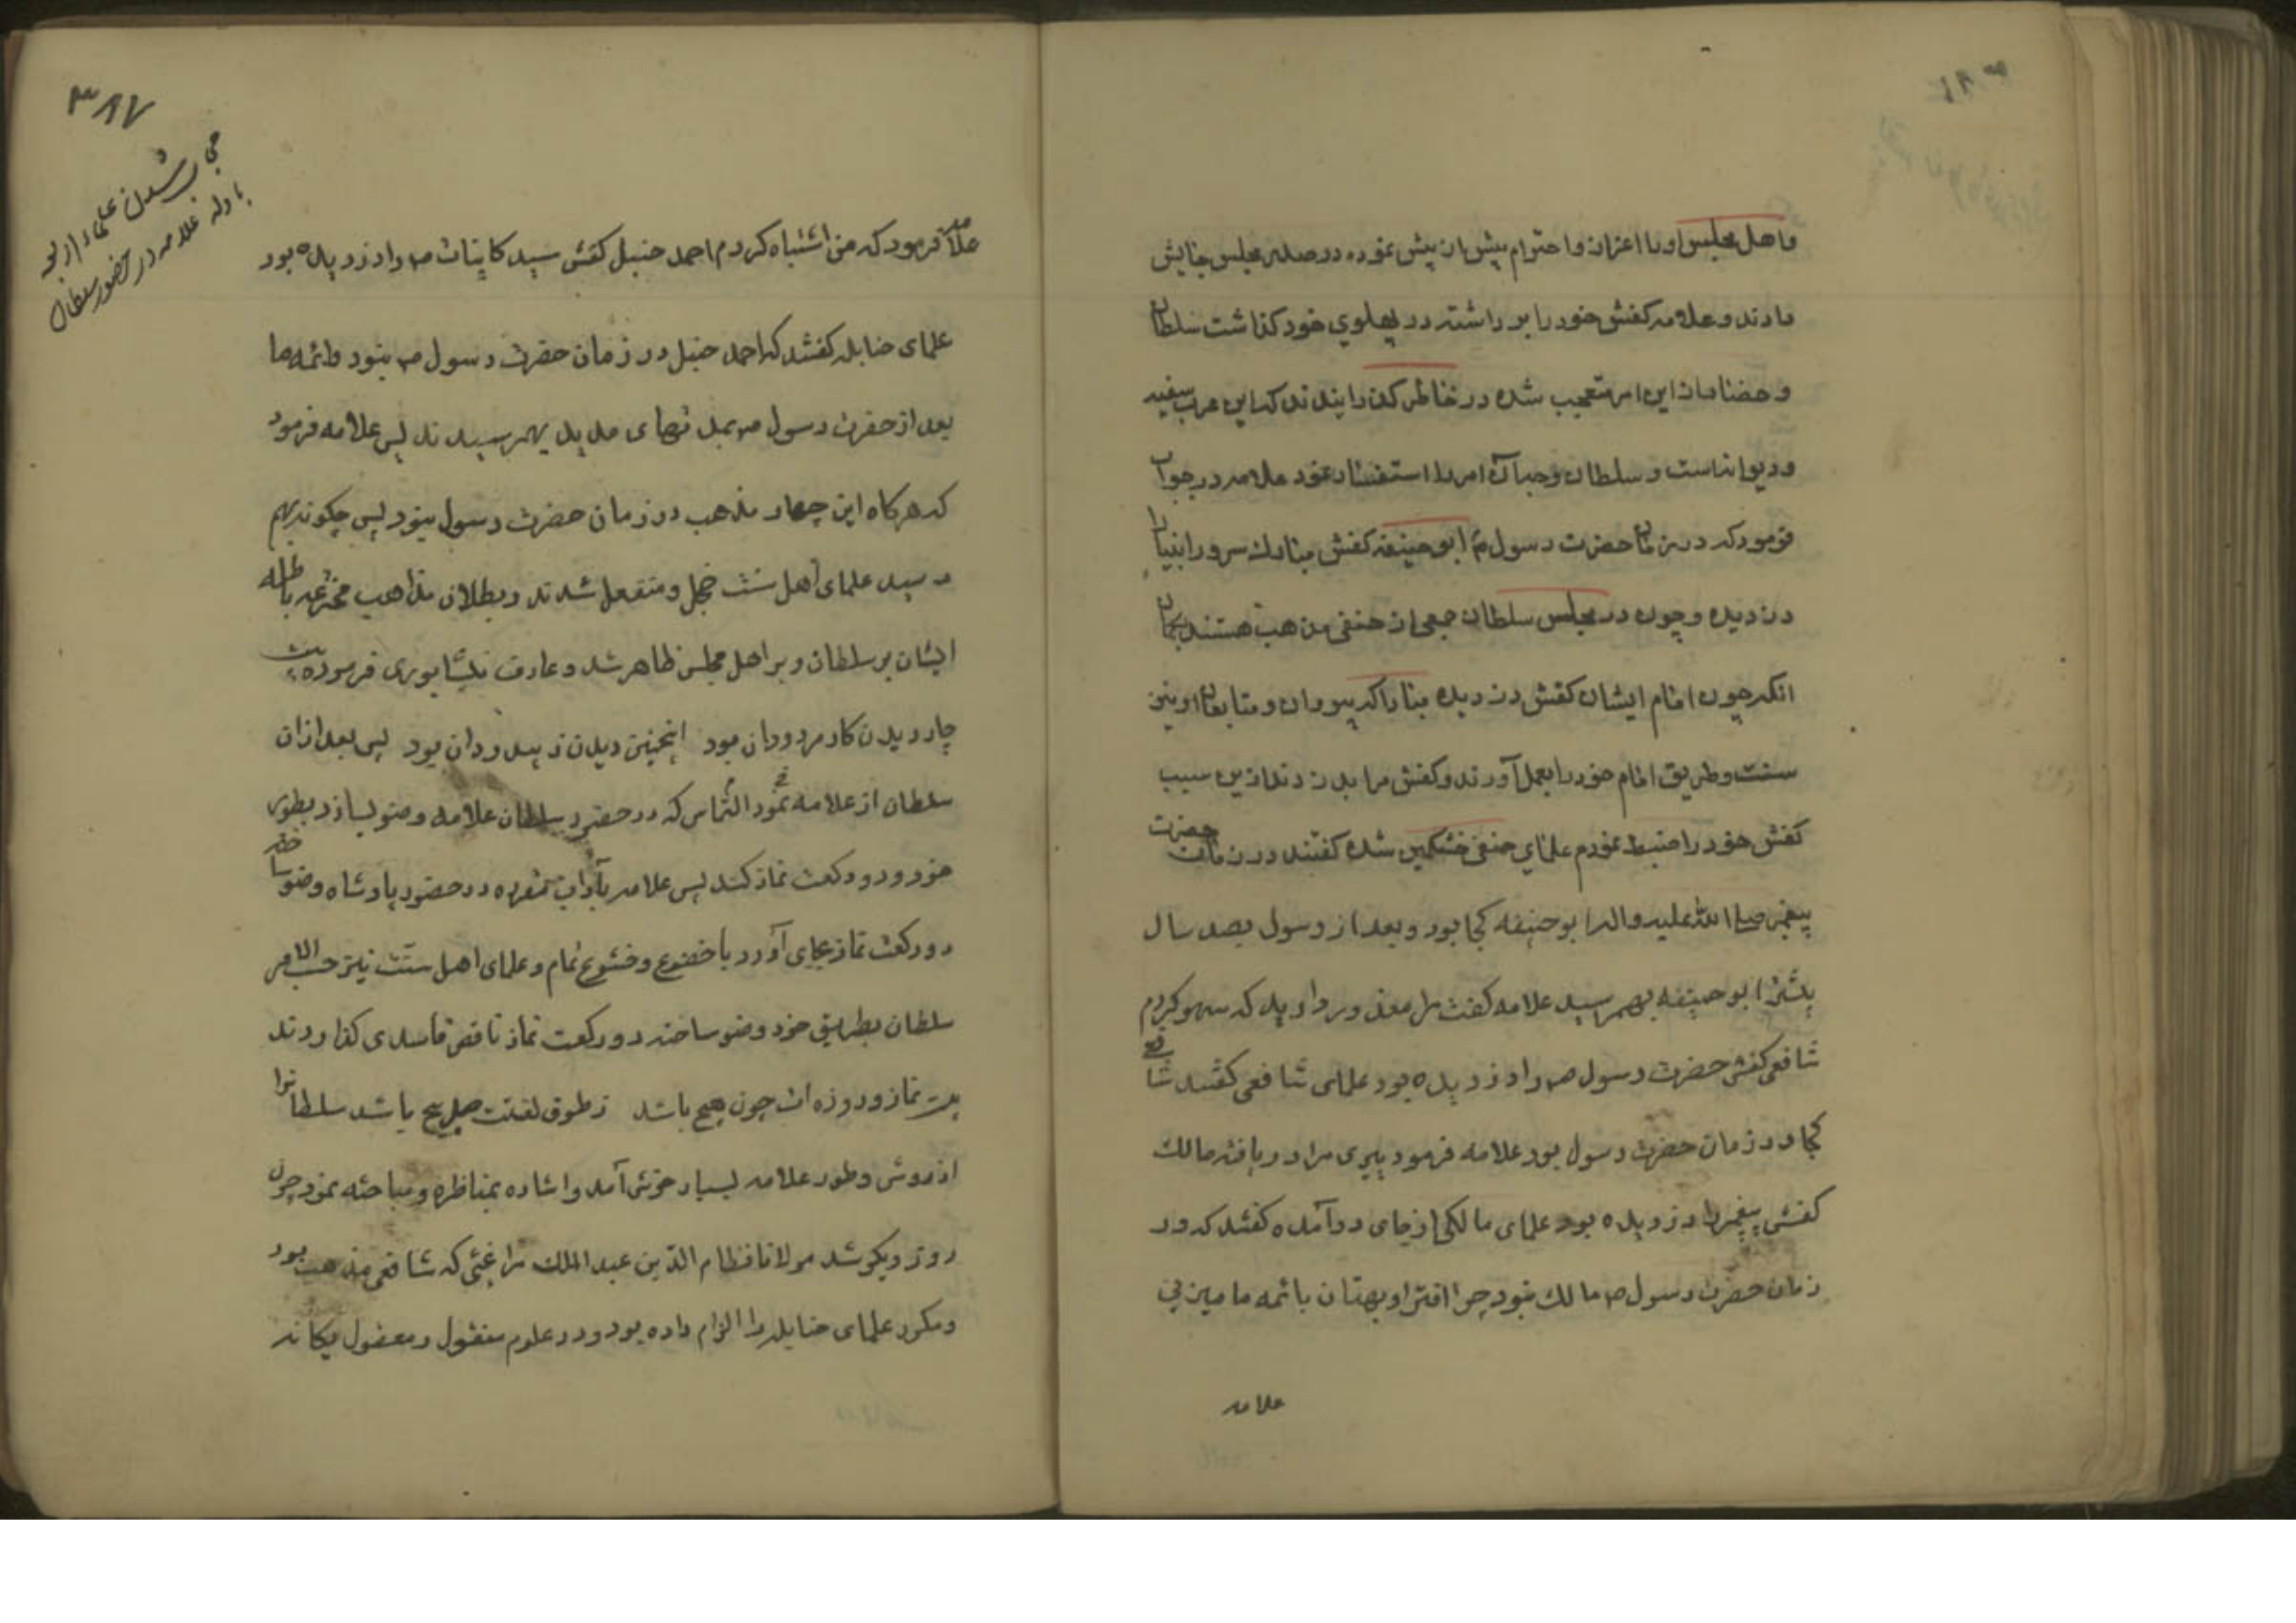 واهل مجلس او را اعزاز و احترام بیش از پیش نموده در صدر مجلس جایش
دادند و علامه کفش خود را برداشته در پهلوی خود گذاشت سلطان
و حضار از این امر متعجب شده در خاطر گذرانیدند که این عرب سفیه
و دیوانه است و سلطان وجه آن امر را استفسار نمود علامه در جواب
فرمود که در زمان حضرت رسول ص ابو حنیفه کفش مبارک سرور انبیا را
دزدیده و چون در مجلس سلطان جمعی از حنفی مذهب هستند بگمان
انکه چون امام ایشان کفش دزدیده مبادا که پیروان و متابعان او نیز
سنت و طریق امام خود را بعمل آورند و کفش مرا بدزدند ازین سبب
کفش خود را ضبط نمودم علمای حنفی خشمگین شده گفتند در زمان حضرت
پیغمبر صلی الله علیه واله ابو حنیفه کجا بود و بعد از رسول بصد سال
بیشتر ابو حنیفه بهمرسید علامه گفت مرا معذور دارید که سهو کردم
شافعی کفش حضرت رسول ص را دزدیده بود علمای شافعی گفتند شافعی
کجا در زمان حضرت رسول بود علامه فرمود پیری مرا دریافته مالک
کفش پیغمبر را دزدیده بود علمای مالکی از جای درآمده گفتند که در
زمان حضرت رسول ص مالک نبود چرا افترا و بهتان بائمه ما میزنی
علامه
۳۸۷
جمع شدن علماء اربعه
با وله علامه در حضور سلطان
علامه فرمود که من اشتباه کردم احمد حنبل کفش سید کاینات ص را دزدیده بود
علمای حنابله گفتند که احمد حنبل در زمان حضرت رسول ص نبود وائمه ما
بعد از حضرت رسول ص بمدتهای مدید بهمرسیدند پس علامه فرمود
که هرگاه این چهار مذهب در زمان حضرت رسول نبود پس چگونه بهم
رسید علمای اهل سنت خجل و منفعل شدند و بطلان مذاهب مخترعه باطله
ایشان بر سلطان و بر اهل مجلس ظاهر شد و عارف نیشابوری فرموده بیت
چار دیدن کار مردودان بود اینچنین دیدن ز بیدردان بود پس بعد ازان
سلطان از علامه نمود التماس که در حضور سلطان علامه وضو بسازد بطور
خود و دو رکعت نماز کند پس علامه بآداب مقرره در حضور پادشاه وضو ساخته
دو رکعت نماز بجای آورد با خضوع و خشوع تمام و علمای اهل سنت نیز حسب الامر
سلطان بطریق خود وضو ساخته دو رکعت نماز ناقص فاسدی گذاردند
بیت نماز و روزه ات چون هیچ باشد ز طوق لعنتت صد پیچ باشد سلطانرا
از روش و طور علامه بسیار خوش آمد واشاره بمناظره و مباحثه نمود چون
روز دیگر شد مولانا نظام الدین عبد الملک مراغئی که شافعی مذهب بود
ومکرر علمای حنابله را الزام داده بود و در علوم منقول و معقول یگانه